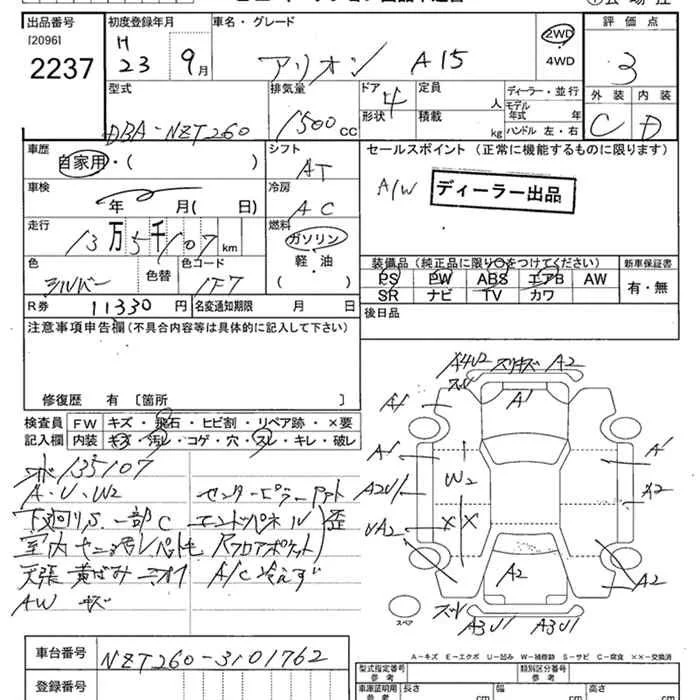 出品番号
[2096]
2237
初度登録年月
H
23 9月
車名・グレード
アリオン A15
2WD
4WD
評価点
3
外装 内装
C D
型式
DBA-NZT260
排気量
1500 CC
ドア
4
形状
定員
人
積載
kg
ディーラー・並行
モデル
年式 年
ハンドル 左・右
車歴
自家用・( )
シフト
AT
セールスポイント (正常に機能するものに限ります)
A/W
ディーラー出品
車検
年 月( 日)
冷房
AC
走行
13万5千107km
燃料
ガソリン
軽・油
( )
色
シルバー
色替
色コード
1F7
装備品(純正品に限り○をつけてください)
PS PW ABS エアB AW
SR ナビ TV カワ
新車保証書
有・無
R券 11330円
名変通知期限 月 日
後日品
注意事項申告欄(不具合内容等は具体的に記入して下さい)
修復歴 有 〔箇所 〕
検査員
記入欄
FW キズ・飛石・ヒビ割・リペア跡・×要
内装 キズ・汚レ・コゲ・穴・スレ・キレ・破レ
135107
A・U・W2
センターピラー
下廻りS.一部C エンドパネル 歪
室内 Rフロアポケット
天張 黄ばみ ニオイ A/C冷えず
AW キズ
A4U2 スリキズ A2
A1
A1
A1
A1
W2
A2U1
A2
UA2
X X
A2
A2
A3U1 A3U1
スペア
A-キズ E-エクボ U-凹み W-補修跡 S-サビ C-腐食 ××-交換済
車台番号
NZT260-3101762
登録番号
型式指定番号
参考
類別区分番号
参考
車庫証明用
参考
長さ cm
幅 cm
高さ cm